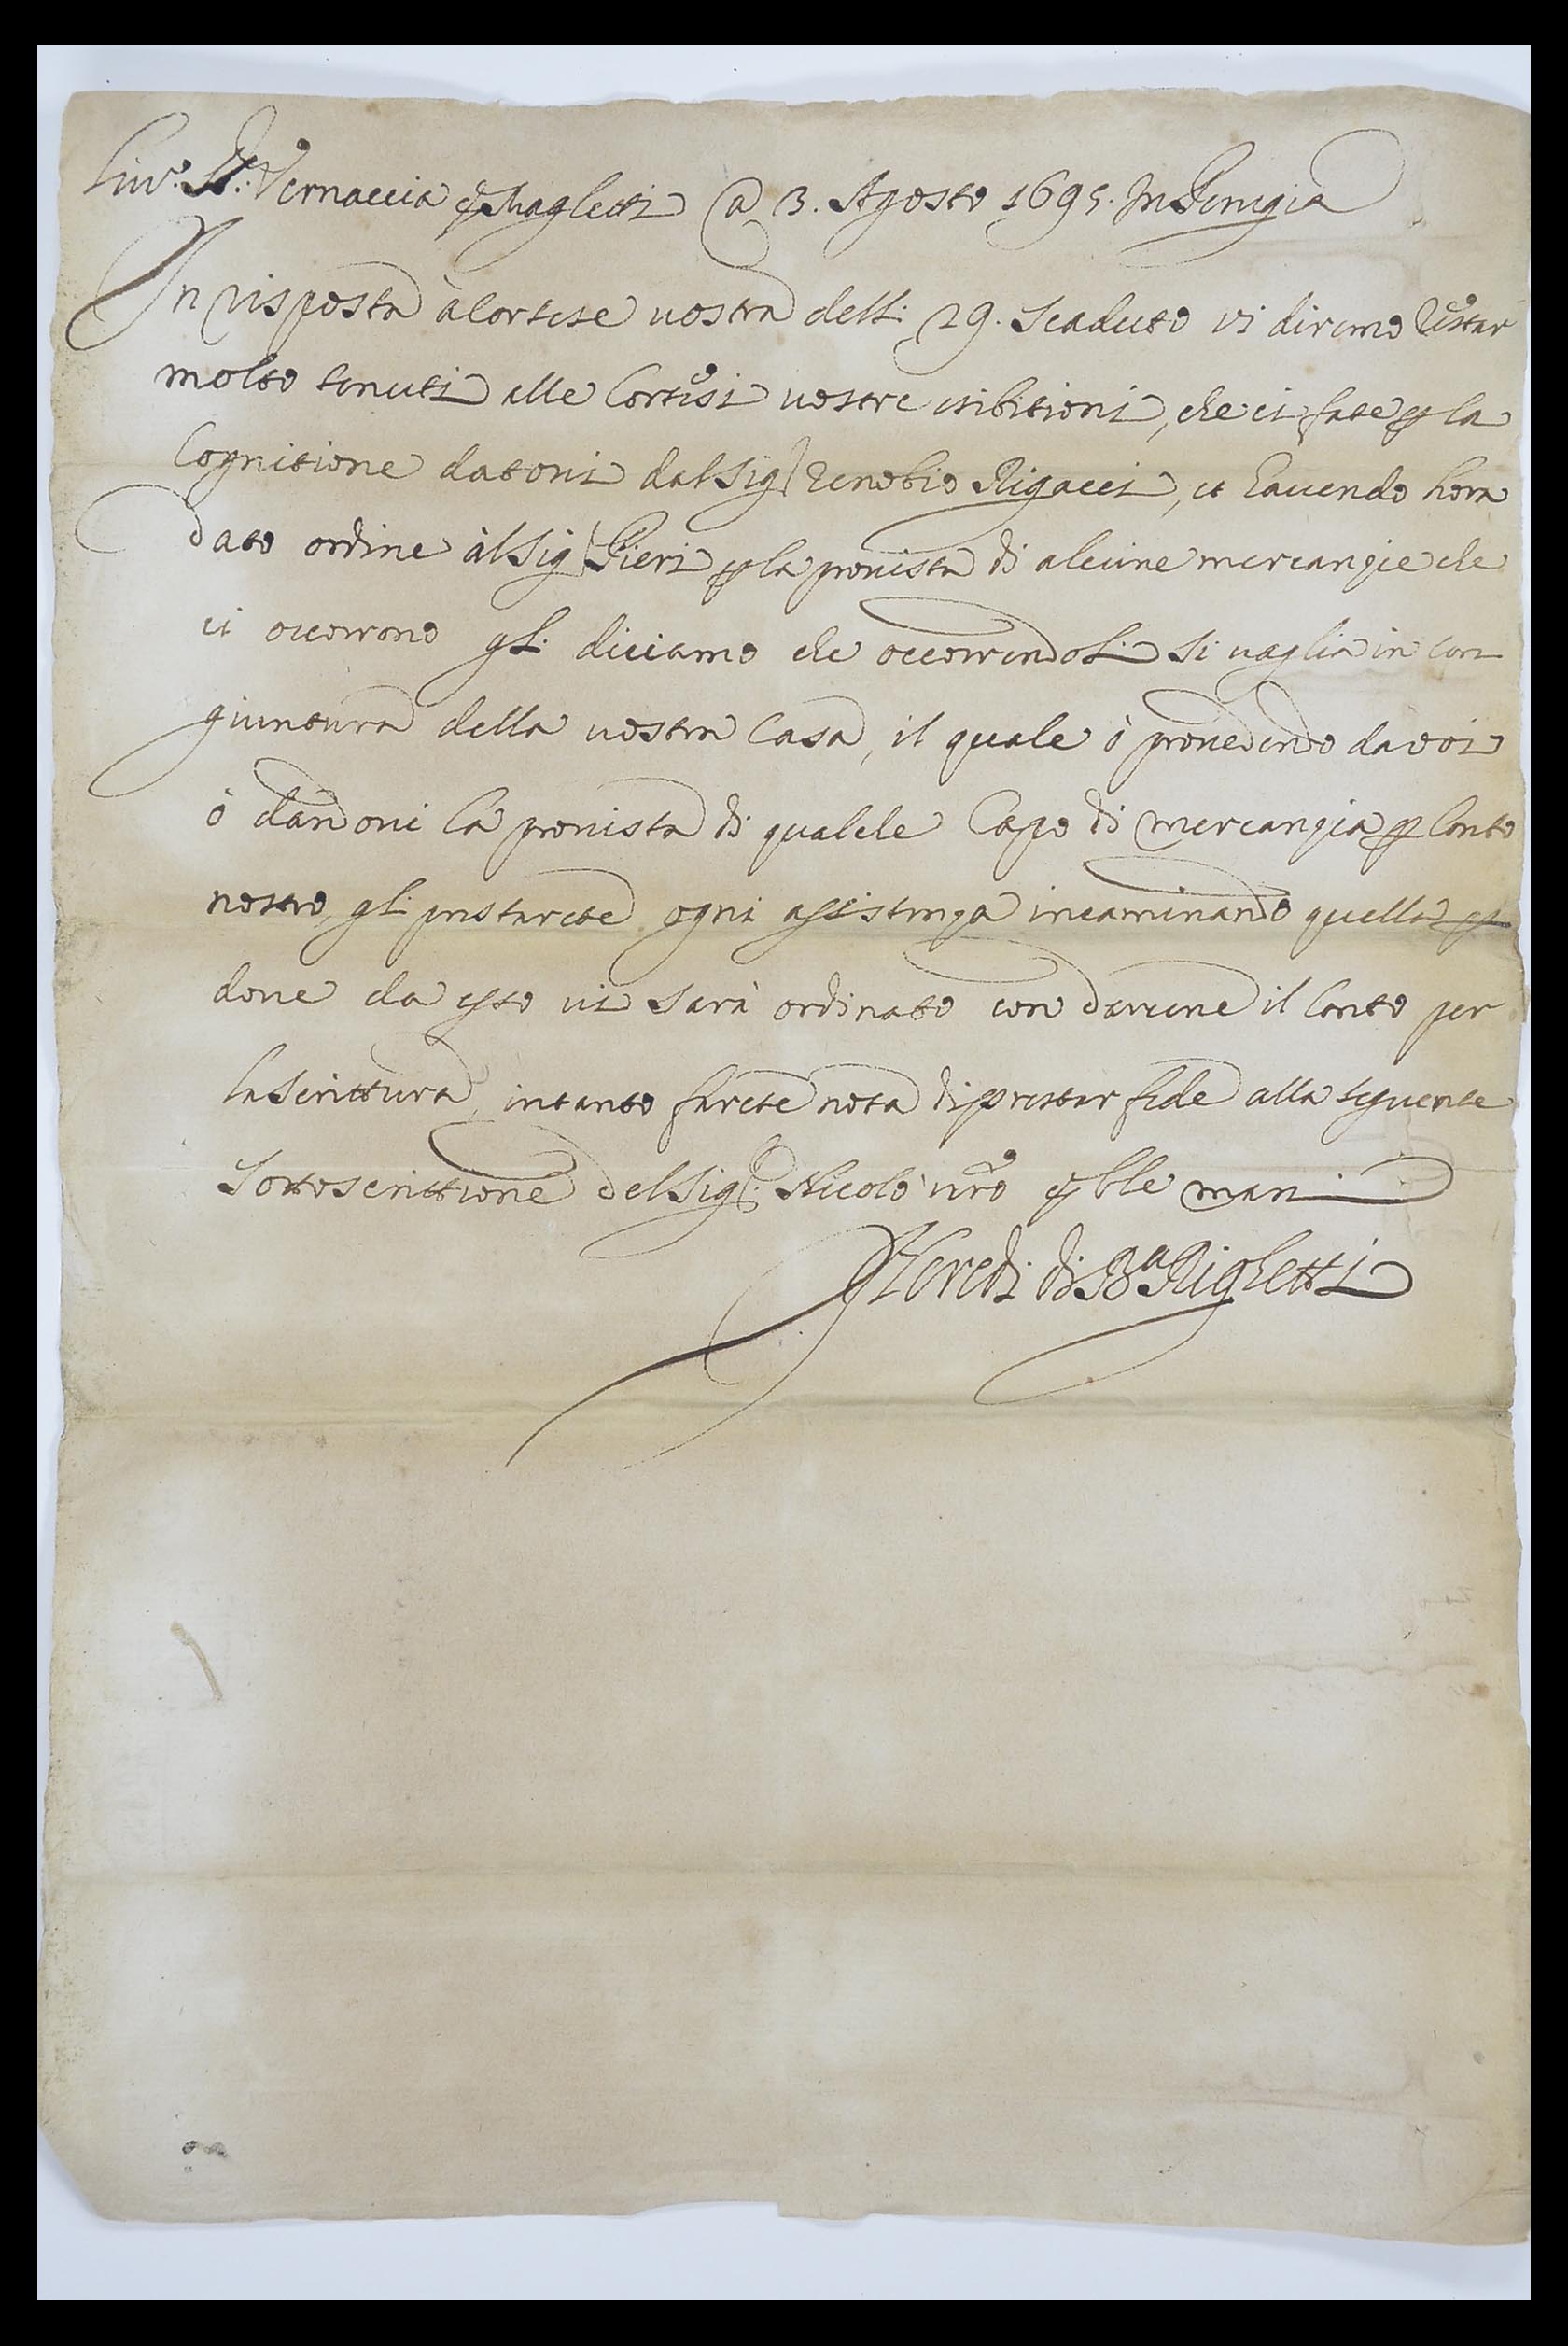 Liv.º SS.ri Vernaccia e Maglietti @ 3. Agosto 1695. In Venezia
In risposta à cortese vostra delli 29. scaduto vi diremo restar
molto tenuti alle cortesi vostre esibitioni, che ci fate p la
Cognitione datoni dal Sig Zenobio Rigacci, et havendo hora
dato ordine àl Sig Pieri p la provista di alcune mercanzie che
ci occorrono gli diciamo che occorrendoli si vaglia in con
giuntura della vostra Casa, il quale ò provedendo da voi
ò dandoni la provista di qualche Capo di mercanzia p Conto
nostro, gli prestarete ogni assistenza incaminando quella p
dove da esso vi sarà ordinato con darcene il Conto per
la Scrittura, intanto farete nota di prestar fede alla seguente
Sottoscrittione del Sig: Nicolò nro e ble mani
Heredi di Ba Righetti